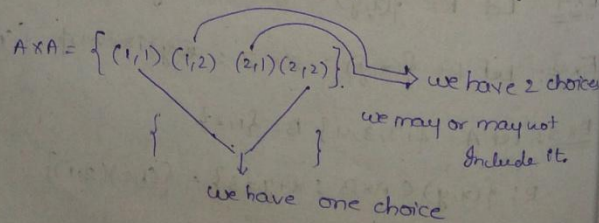 A×A = { (1,1) (1,2) (2,1) (2,2) }.
we have 2 choices
we may or may not
Include it.
{ }
we have one choice